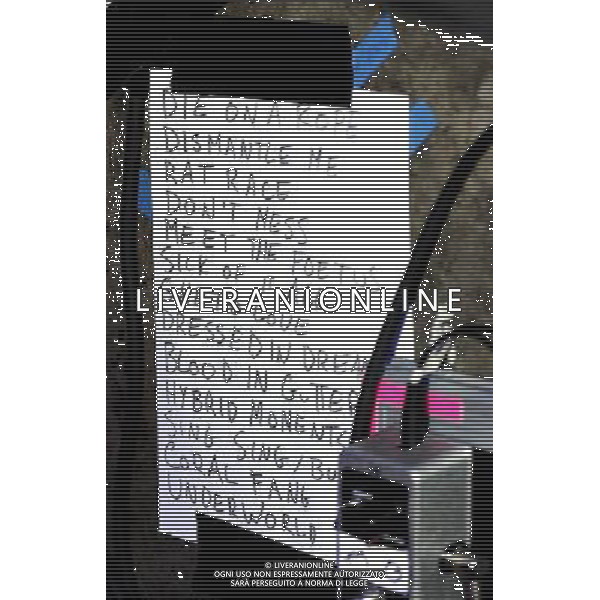 DIE ON A ROPE
DISMANTLE ME
RAT RACE
DON'T MESS
MEET THE FOETUS
SICK OF
CODE
LIVERANIONLINE
DRESSED IN DREA
BLOOD IN GUTTER
HYBRID MOMENTS
SING SING / BU
CORAL FANG
UNDERWORLD
© LIVERANIONLINE
OGNI USO NON ESPRESSAMENTE AUTORIZZATO
SARÀ PERSEGUITO A NORMA DI LEGGE